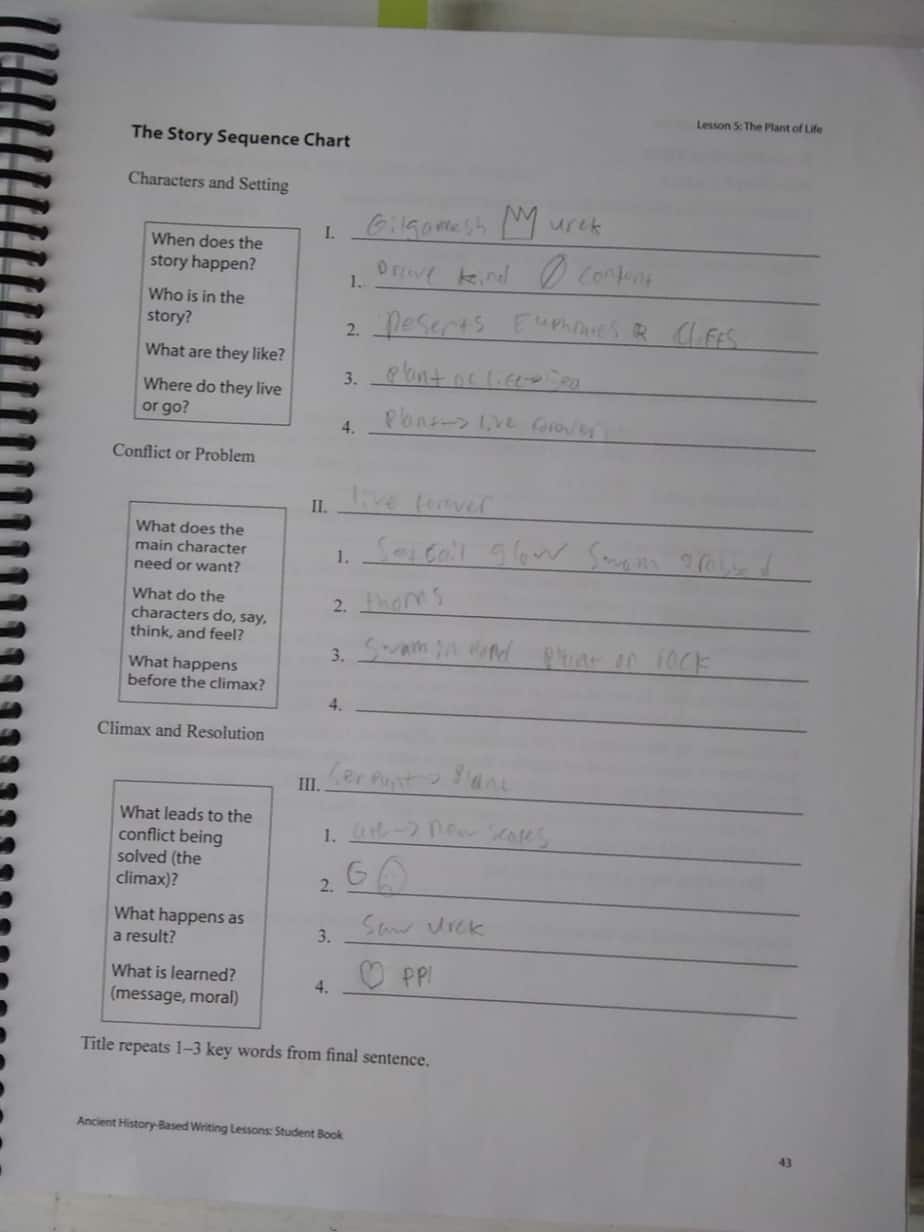 Lesson 5: The Plant of Life
The Story Sequence Chart
Characters and Setting
When does the
story happen?
Who is in the
story?
What are they like?
Where do they live
or go?
I. Gilgamesh urek
1. kind content
2. Deserts & Cliffs
3. plant of life →
4. plant → live forever
Conflict or Problem
What does the
main character
need or want?
What do the
characters do, say,
think, and feel?
What happens
before the climax?
II. live forever
1. Set sail glow swam grabbed
2. thorns
3. swam plant on rock
4.
Climax and Resolution
What leads to the
conflict being
solved (the
climax)?
What happens as
a result?
What is learned?
(message, moral)
III. → Plant
1. → new scales
2. G
3. Saw Urek
4. ♡ ppl
Title repeats 1–3 key words from final sentence.
Ancient History-Based Writing Lessons: Student Book
43